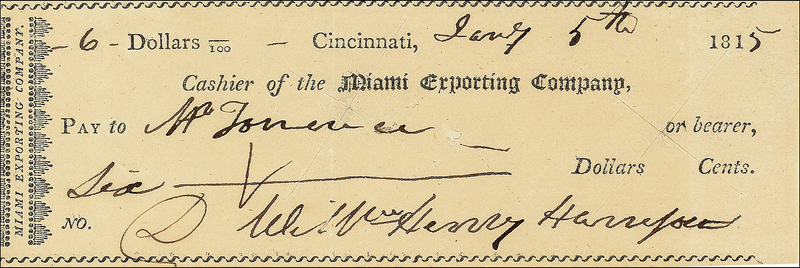 MIAMI EXPORTING COMPANY.
- 6 - Dollars /100 - Cincinnati, Jany 5th 1815
Cashier of the Miami Exporting Company,
PAY to Mr Torrence or bearer,
Six Dollars Cents.
NO. Willm Henry Harrison